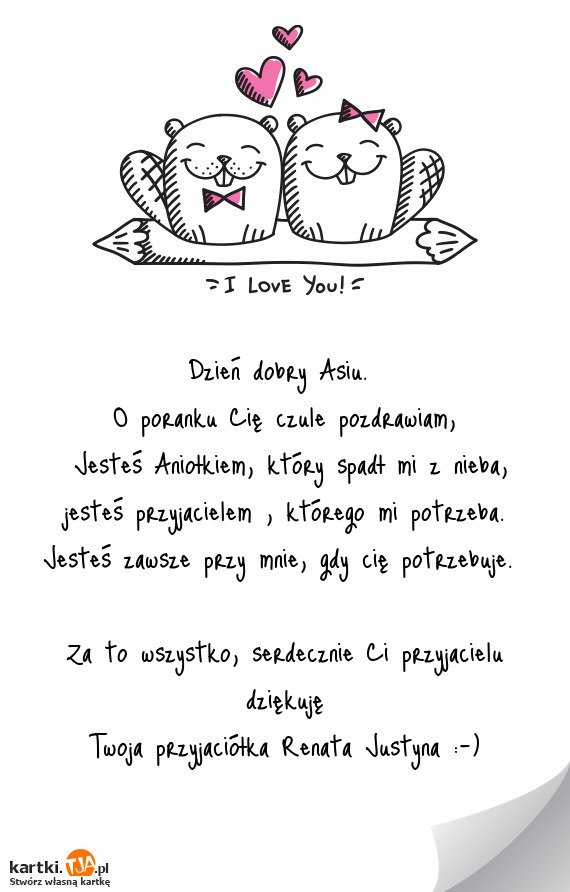 I LOVE YOU!
Dzień dobry Asiu.
O poranku Cię czule pozdrawiam,
Jesteś Aniołkiem, który spadł mi z nieba,
jesteś przyjacielem , którego mi potrzeba.
Jesteś zawsze przy mnie, gdy cię potrzebuje.
Za to wszystko, serdecznie Ci przyjacielu
dziękuję
Twoja przyjaciółka Renata Justyna :-)
kartki.TJA.pl
Stwórz własną kartkę